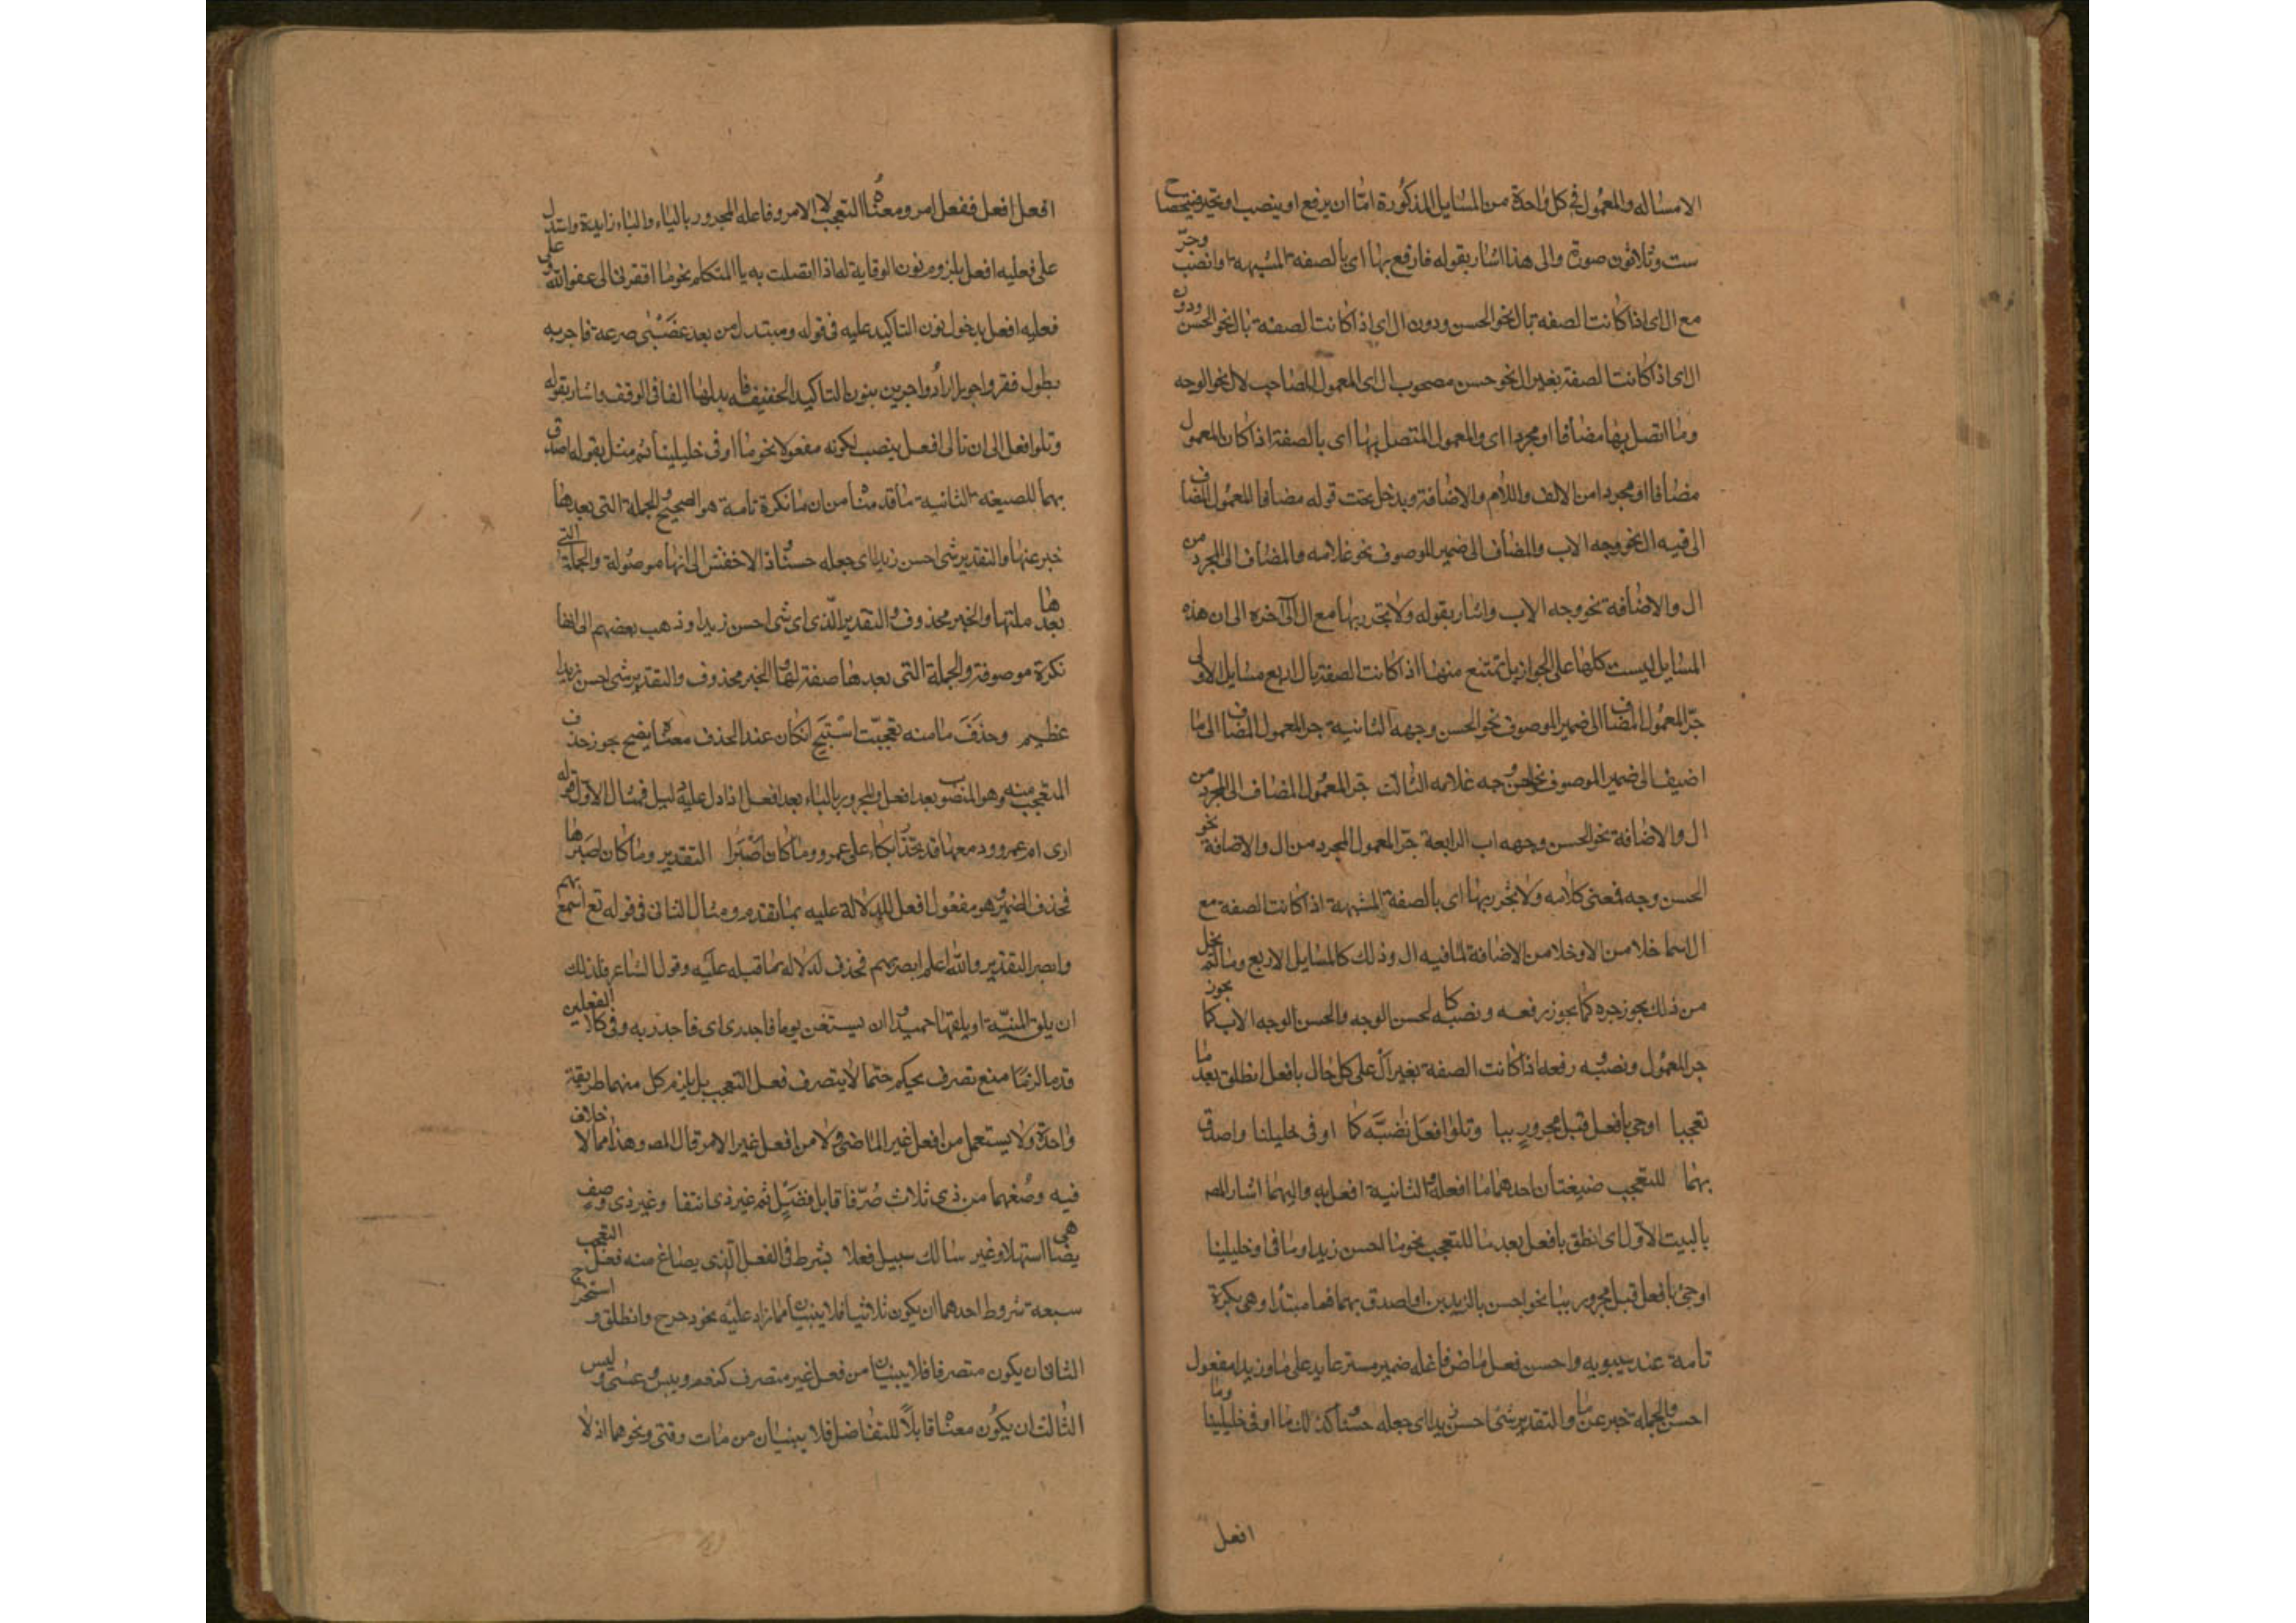 الامثاله والمعمول في كل واحدة من المسايل المذكورة اما ان يرفع او ينصب او يجر فيتحصل ح
ست وثلاثون صورة والى هذا اشار بقوله فارفع بها اى بالصفه المشبهه وانصب وجر
مع ال اى اذا كانت الصفه بال نحو الحسن ودون ال اى اذا كانت الصفة بال نحو الحسن ودون
ال اى اذا كانت الصفة بغير ال نحو حسن مصحوب ال اى المعمول المصاحب لال نحو الوجه
وما اتصل بها مضافا او مجردا اى والمعمول المتصل بها اى بالصفة اذا كان المعمول
مضافا او مجردا من الالف واللام والاضافة ويدخل تحت قوله مضافا المعمول المضاف
الى فيه ال نحو وجه الاب والمضاف الى ضمير الموصوف نحو غلامه والمضاف الى المجرد من
ال والاضافة نحو وجه الاب واشار بقوله ولا تجرر بها مع ال الى آخره الى ان هذه
المسايل ليست كلها على الجواز بل تمتنع منها اذا كانت الصفة بال اربع مسايل الاولى
جر المعمول المضاف الى ضمير الموصوف نحو الحسن وجهه الثانية جر المعمول المضاف الى ما
اضيف الى ضمير الموصوف نحو الحسن وجه غلامه الثالث جر المعمول المضاف الى المجرد من
ال والاضافة نحو الحسن وجهه اب الرابعة جر المعمول المجرد من ال والاضافة نحو
الحسن وجه فمعنى كلامه ولا تجرر بها اى بالصفة المشبهة اذا كانت الصفه مع
ال اسما خلا من ال وخلا من الاضافة لما فيه ال وذلك كالمسايل الاربع وما لم يخل
من ذلك يجوز جره كما يجوز رفعه ونصبه كالحسن الوجه والحسن الوجه الاب كما يجوز
جر المعمول ونصبه ورفعه اذا كانت الصفة بغير ال على كل حال بافعل انطلق بعد ما
تعجبا او جئ بافعل قبل مجرور ببا وتلو افعل نضبه كما اوفى خليلنا واصدق
بهما للتعجب ضيغتان احدهما ما افعله والثانية افعل به واليهما اشار المص
بالبيت الاول اى انطق بافعل بعد ما للتعجب نحو ما احسن زيدا وما اوفى خليلينا
او جئ بافعل قبل مجرور ببا نحو احسن بالزيدين او اصدق بهما فما مبتدا وهى نكرة
تامة عند سيبويه واحسن فعل ماض فاعله ضمير مستتر عايد على ما وزيدا مفعول
احسن والجملة خبر عن ما والتقدير شئ احسن زيدا اى جعله حسنا وكذلك ما اوفى خليلينا وما
افعل
افعل افعل ففعل امر ومعناه التعجب لا الامر وفاعله المجرور بالباء والباء زايدة واستدل
على فعليه افعل بلزوم نون الوقاية له اذا اتصلت به يا المتكلم نحو ما افقرنى الى عفو الله وعلى
فعليه افعل بدخول نون التاكيد عليه فى قوله ومستبدل من بعد غضبى صريمة فاحر به
بطول فقر واحريا اراد واحرين بنون التاكيد الخفيفه فابدلها الفا فى الوقف واشار بقوله
وتلو افعل الى ان تالى افعل ينصب لكونه مفعولا نحو ما اوفى خليلينا ثم مثل بقوله اصدق
بهما للصيغه الثانية ما قدمنا من ان ما نكرة تامة هو الصحيح والجملة التى بعدها
خبر عنها والتقدير شى احسن زيدا اى جعله حسنا وذ الاخفش الى انها موصولة والجملة التى
بعدها صلتها والخبر محذوف والتقدير الذى اى شى احسن زيدا وذهب بعضهم الى انها
نكرة موصوفة والجملة التى بعدها صفة لها والخبر محذوف والتقدير شى احسن زيدا
عظيم وحذف ما منه تعجبت استبح ان كان عند الحذف معناه يضح يجوز حذف
المتعجب منه وهو المنصوب بعد افعل والمجرور بالباء بعد افعل اذا دل عليه دليل فمثال الاول قوله
ارى ام عمرو دمعها قد تحذرا بكاء على عمرو وما كان اصبرا التقدير وما كان اصبرها
فحذف الضمير وهو مفعول افعل للدلالة عليه بما تقدم ومثال الثانى فى قوله تع اسمع بهم
وابصر التقدير والله اعلم ابصر بهم فحذف لدلاله ما قبله عليه وقول الشاعر فذلك
ان يلق المنية او يلقها حميدا وان يستغن يوما فاجدرى اى فاجدر به وفى كلا الفعلين
قدما لزما منع تصرف بحكم حتما لا يتصرف فعل التعجب بل يلزم كل منهما طريقة
واحدة ولا يستعمل من افعل غير الماضى ولا من افعل غير الامر قال المص وهذا مما لا خلاف
فيه وصغهما من ذى ثلاث صرفا قابل فضيل تم غير ذى انتفا وغير ذى وصف
يضاهى اشهلا وغير سالك سبيل فعلا يشرط فى الفعل الذى يصاغ منه فعل التعجب
سبعة شروط احدهما ان يكون ثلاثيا فلا يبنيان مما زاد عليه نحو دحرج وانطلق واستخرج
الثانى ان يكون متصرفا فلا يبنيان من فعل غير متصرف كنعم وبيس وعسى وليس
الثالث ان يكون معناه قابلاً للتفاضل فلا يبنيان من مات وفنى ونحوهما اذ لا